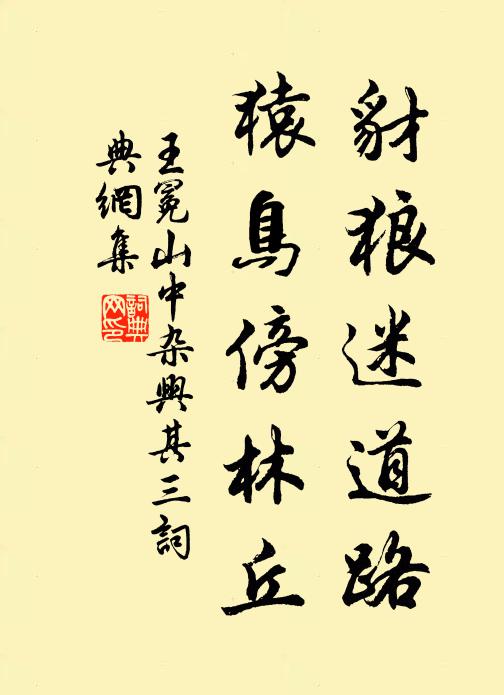 豺狼迷道路
猿鳥傍林丘
王冕山中杂興其三詞
典網集
詞典网印